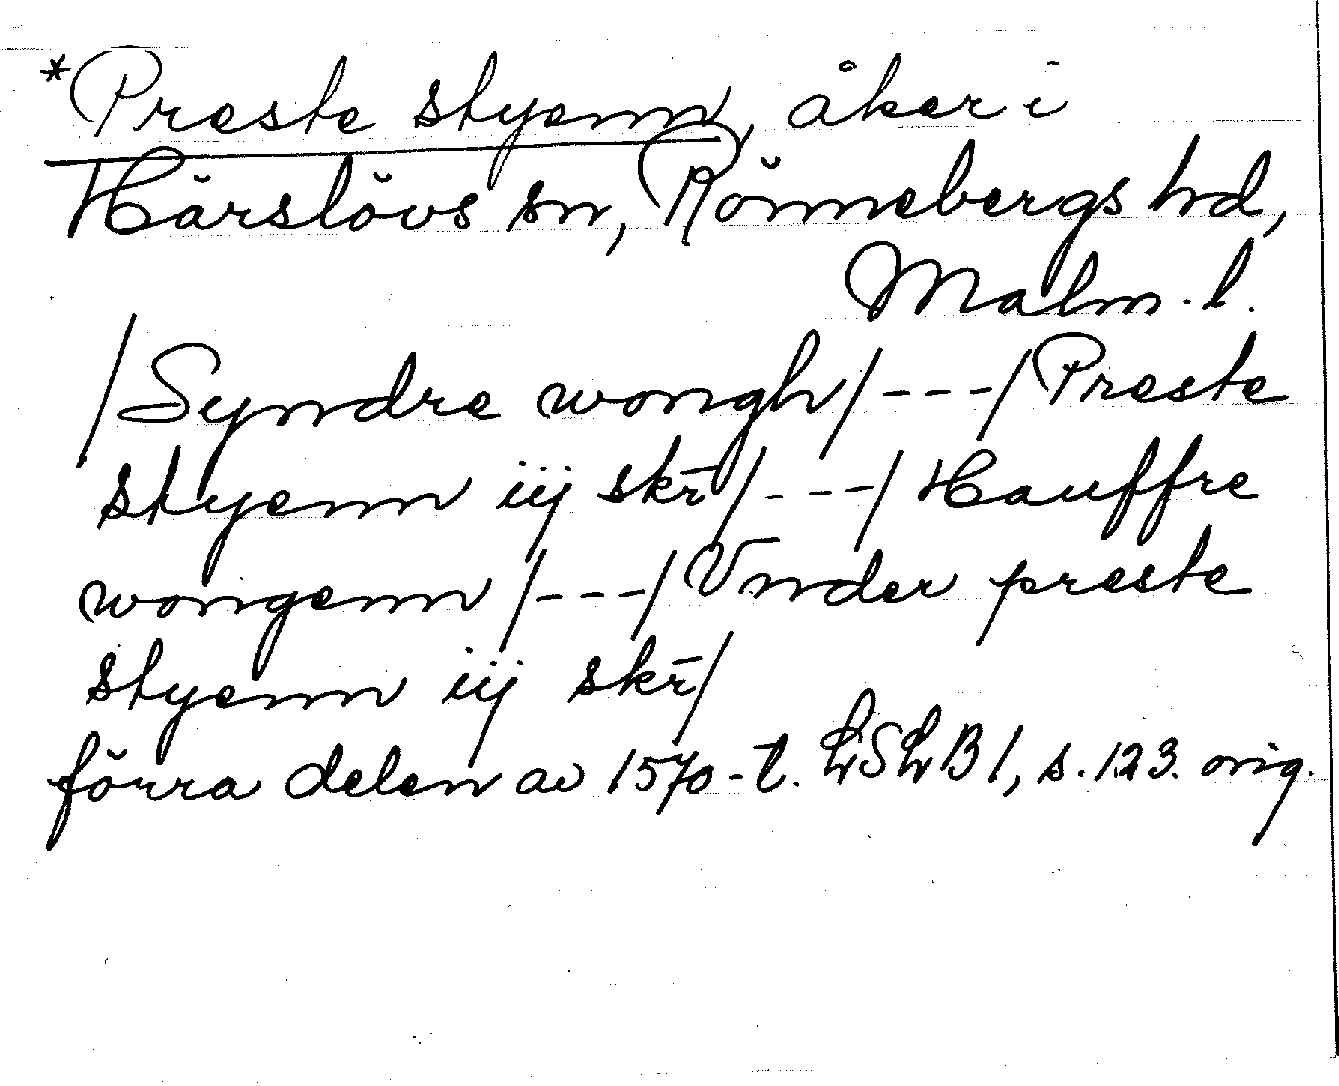 *Preste styenn, åker i
Härslövs sn, Rönnebergs hd,
Malm. l.
/Syndre wongh/---/Preste
styenn iij skr̄/---/Hauffre
wongenn/---/Vnder preste
styenn iij skr̄/
förra delen av 1570-t. LSLB1, s. 123. orig.